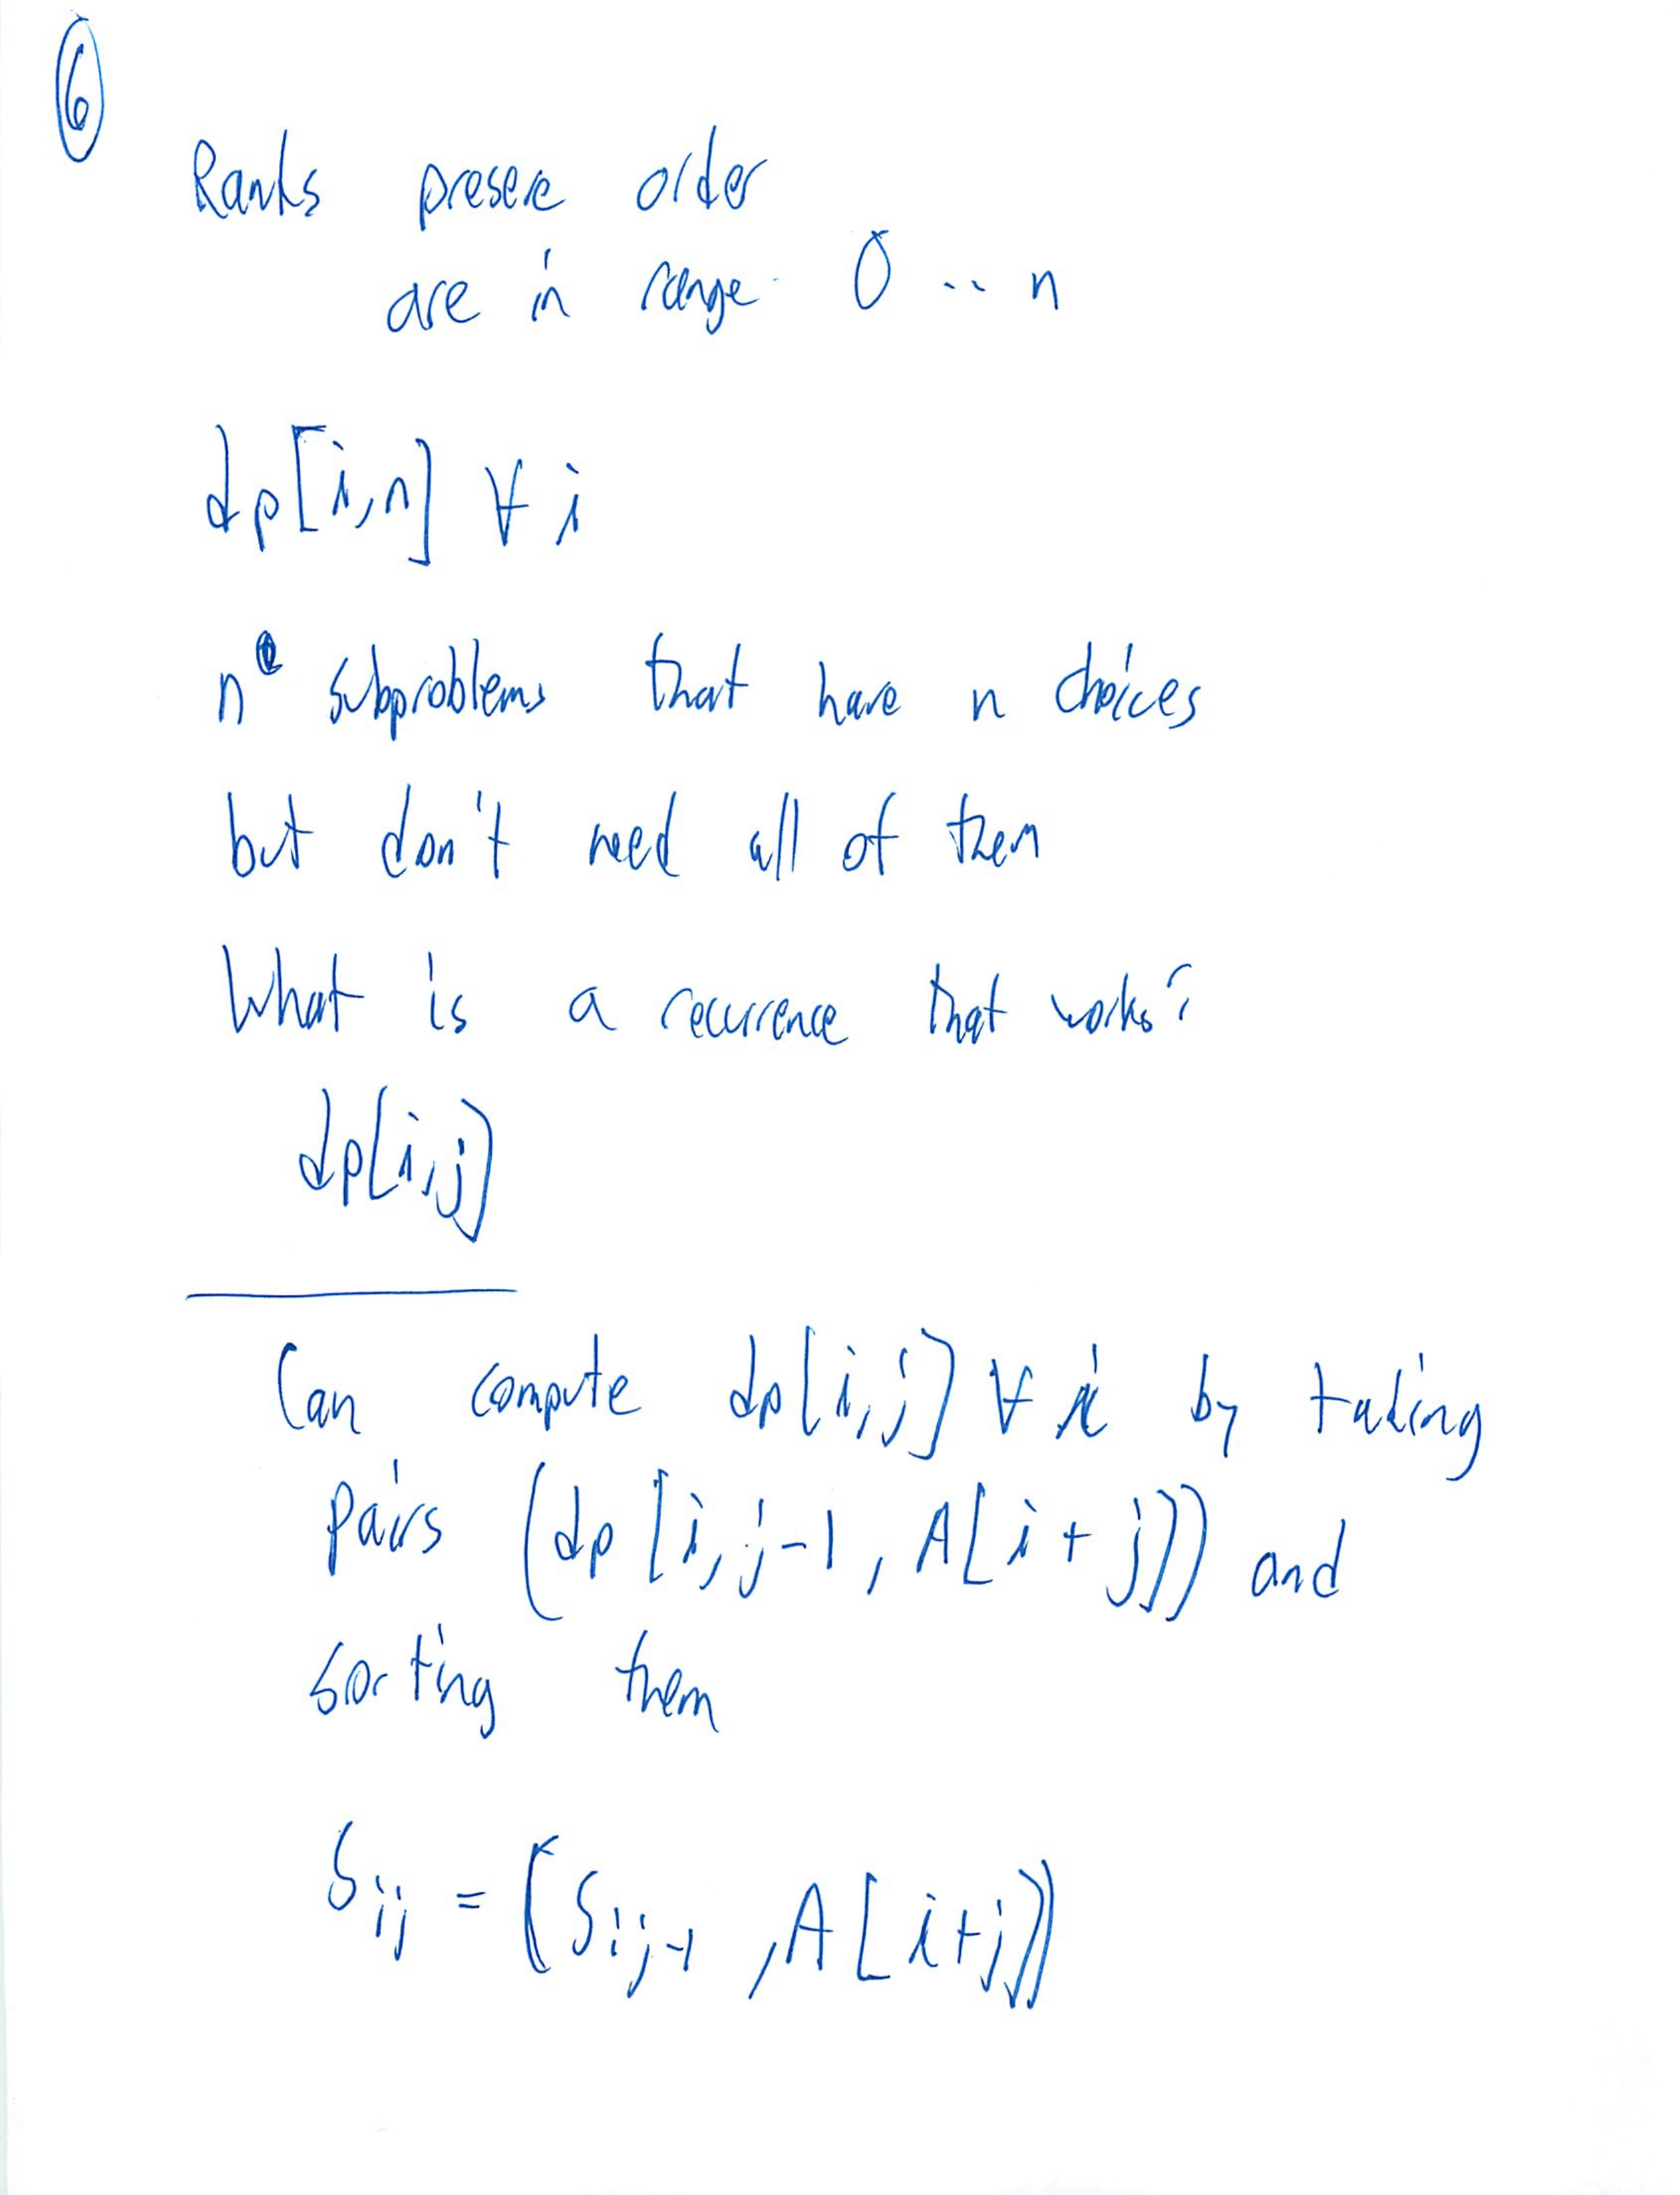 6
Ranks presere order
are in range 0 .. n
dp[i,n] ∀ i
n subproblems that have n choices
but don't need all of them
What is a recurrence that works?
dp[i,j]
Can compute dp[i,j] ∀ i by taking
pairs (dp[i,j-1, A[i+j])) and
sorting them
S_ij = (S_ij-1, A[i+j])